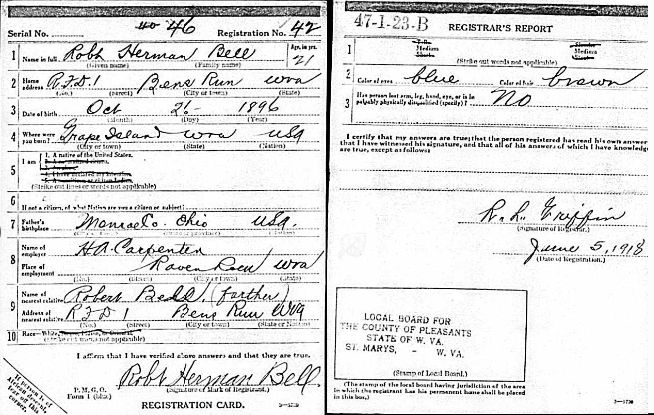 Serial No. 46 Registration No. 42
1 Name in full Robt Herman Bell Age, in yrs. 21
(Given name) (Family name)
2 Home address R.F.D. 1 Bens Run Wva
(No.) (Street) (City or town) (State)
3 Date of birth Oct 1896
(Month) (Day) (Year)
4 Where were you born? Grape Island Wva USA
(City or town) (State) (Nation)
5 I am 1. A native of the United States.
(Strike out lines or words not applicable)
6 If not a citizen, of what Nation are you a citizen or subject?
7 Father's birthplace Monroe Co. Ohio USA.
8 Name of employer H A Carpenter
Place of employment Raven Rock Wva
(No.) (Street) (City or town) (State)
9 Name of nearest relative Robert Bell (farther)
Address of nearest relative R.F.D 1 Bens Run WVa
(No.) (Street) (City or town) (State or Nation)
10 Race—White,
I affirm that I have verified above answers and that they are true.
Robt Herman Bell.
P. M. G. O.
Form 1 (blue)
(Signature or Mark of Registrant.)
REGISTRATION CARD.
If person is of African descent, tear off this corner.
47-1-23-B
REGISTRAR'S REPORT
1 Medium Medium
(Strike out words not applicable)
2 Color of eyes blue Color of hair brown
3 Has person lost arm, leg, hand, eye, or is he palpably physically disqualified (specify)? NO
I certify that my answers are true; that the person registered has read his own answers; that I have witnessed his signature, and that all of his answers of which I have knowledge are true, except as follows:
R. L. Griffin
(Signature of Registrar.)
June 5, 1918
(Date of Registration.)
LOCAL BOARD FOR
THE COUNTY OF PLEASANTS
STATE OF W. VA.
ST. MARYS, - W. VA.
(Stamp of Local Board.)
(The stamp of the local board having jurisdiction of the area in which the registrant has his permanent home shall be placed in this box.)